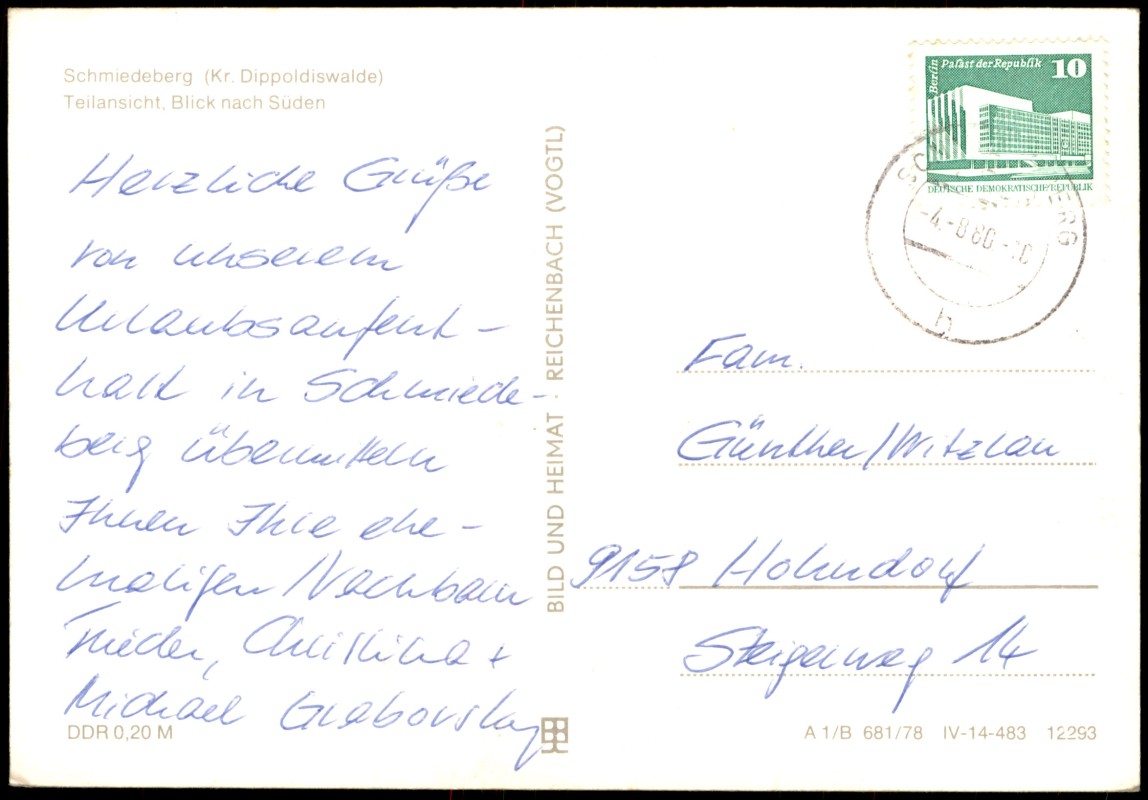 Schmiedeberg (Kr. Dippoldiswalde)
Teilansicht, Blick nach Süden
Herzliche Grüße
von unserem
Urlaubsaufent-
halt in Schmiede-
berg übermitteln
Ihnen Ihre ehe-
maligen Nachbarn
Frieder, Christina +
Michael Grabovsky
DDR 0,20 M
BILD UND HEIMAT · REICHENBACH (VOGTL)
Berlin Palast der Republik 10
DEUTSCHE DEMOKRATISCHE REPUBLIK
-4.-8 80-10
h
Fam.
Günther/Witzlau
9159 Hohndorf
Steigerweg 14
A 1/B 681/78 IV-14-483 12293